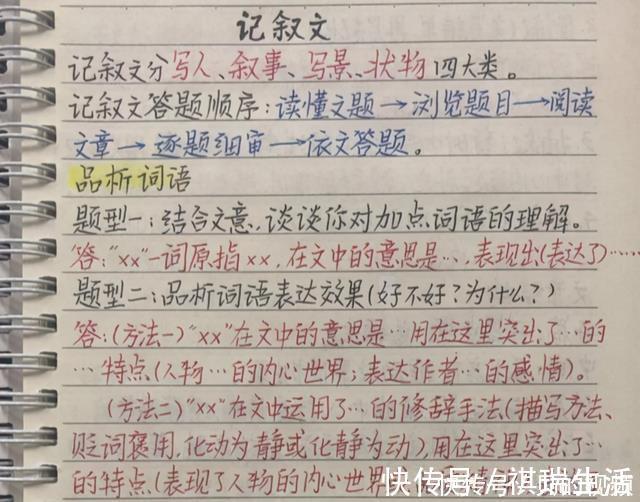 记叙文
记叙文分写人、叙事、写景、状物四大类。
记叙文答题顺序:读懂文题→浏览题目→阅读
文章→逐题细审→依文答题。
品析词语
题型一:结合文意,谈谈你对加点词语的理解。
答:"xx"一词原指xx,在文中的意思是…,表现出(表达了)……
题型二:品析词语表达效果(好不好?为什么?)
答:(方法一)"xx"在文中的意思是…用在这里突出了…的
…特点(人物…的内心世界;表达作者…的感情)。
(方法二)"xx"在文中运用了…的修辞手法(描写方法、
贬词褒用,化动为静或化静为动),用在这里突出了…
的特点(表现了人物的内心世界
快传号/祺瑞生活